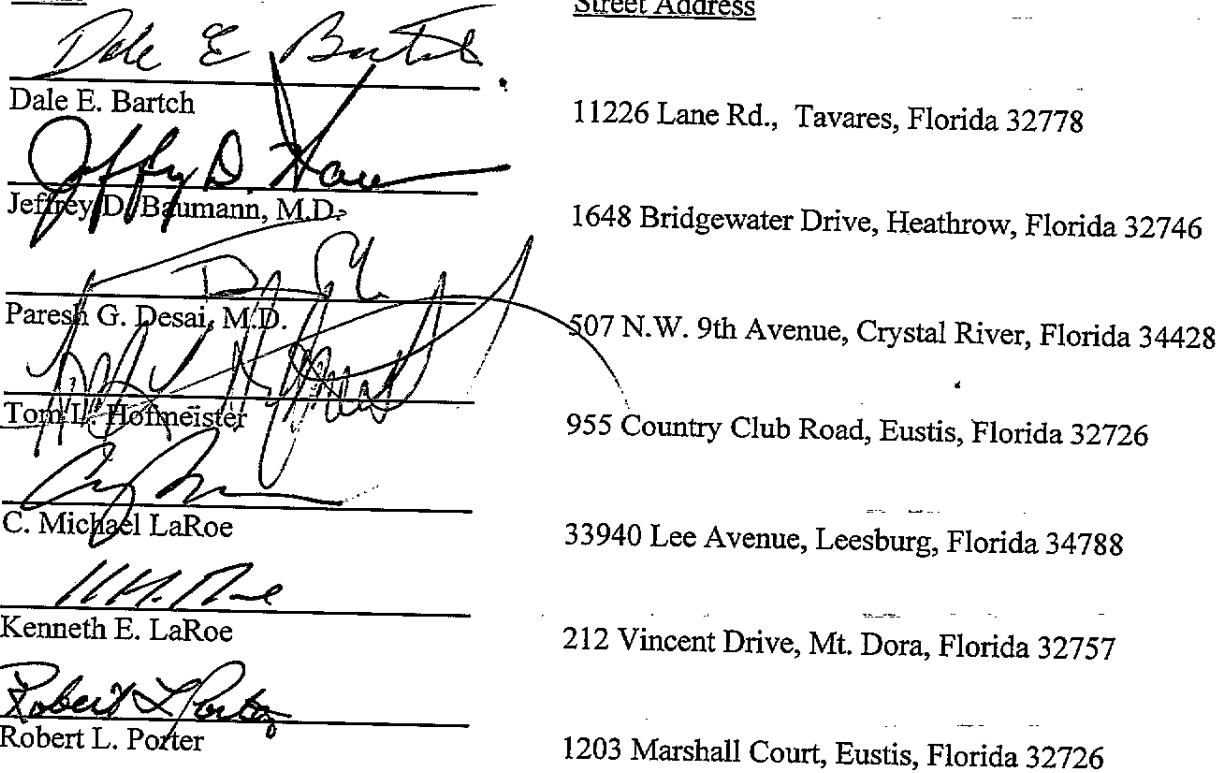 Street Address
Dale E Bartch
Dale E. Bartch
11226 Lane Rd., Tavares, Florida 32778
Jeffrey D.
Jeffrey D. Baumann, M.D.
1648 Bridgewater Drive, Heathrow, Florida 32746
Paresh G. Desai, M.D.
507 N.W. 9th Avenue, Crystal River, Florida 34428
Tom L. Hofmeister
955 Country Club Road, Eustis, Florida 32726
C. Michael LaRoe
33940 Lee Avenue, Leesburg, Florida 34788
Kenneth E. LaRoe
212 Vincent Drive, Mt. Dora, Florida 32757
Robert L Porter
Robert L. Porter
1203 Marshall Court, Eustis, Florida 32726